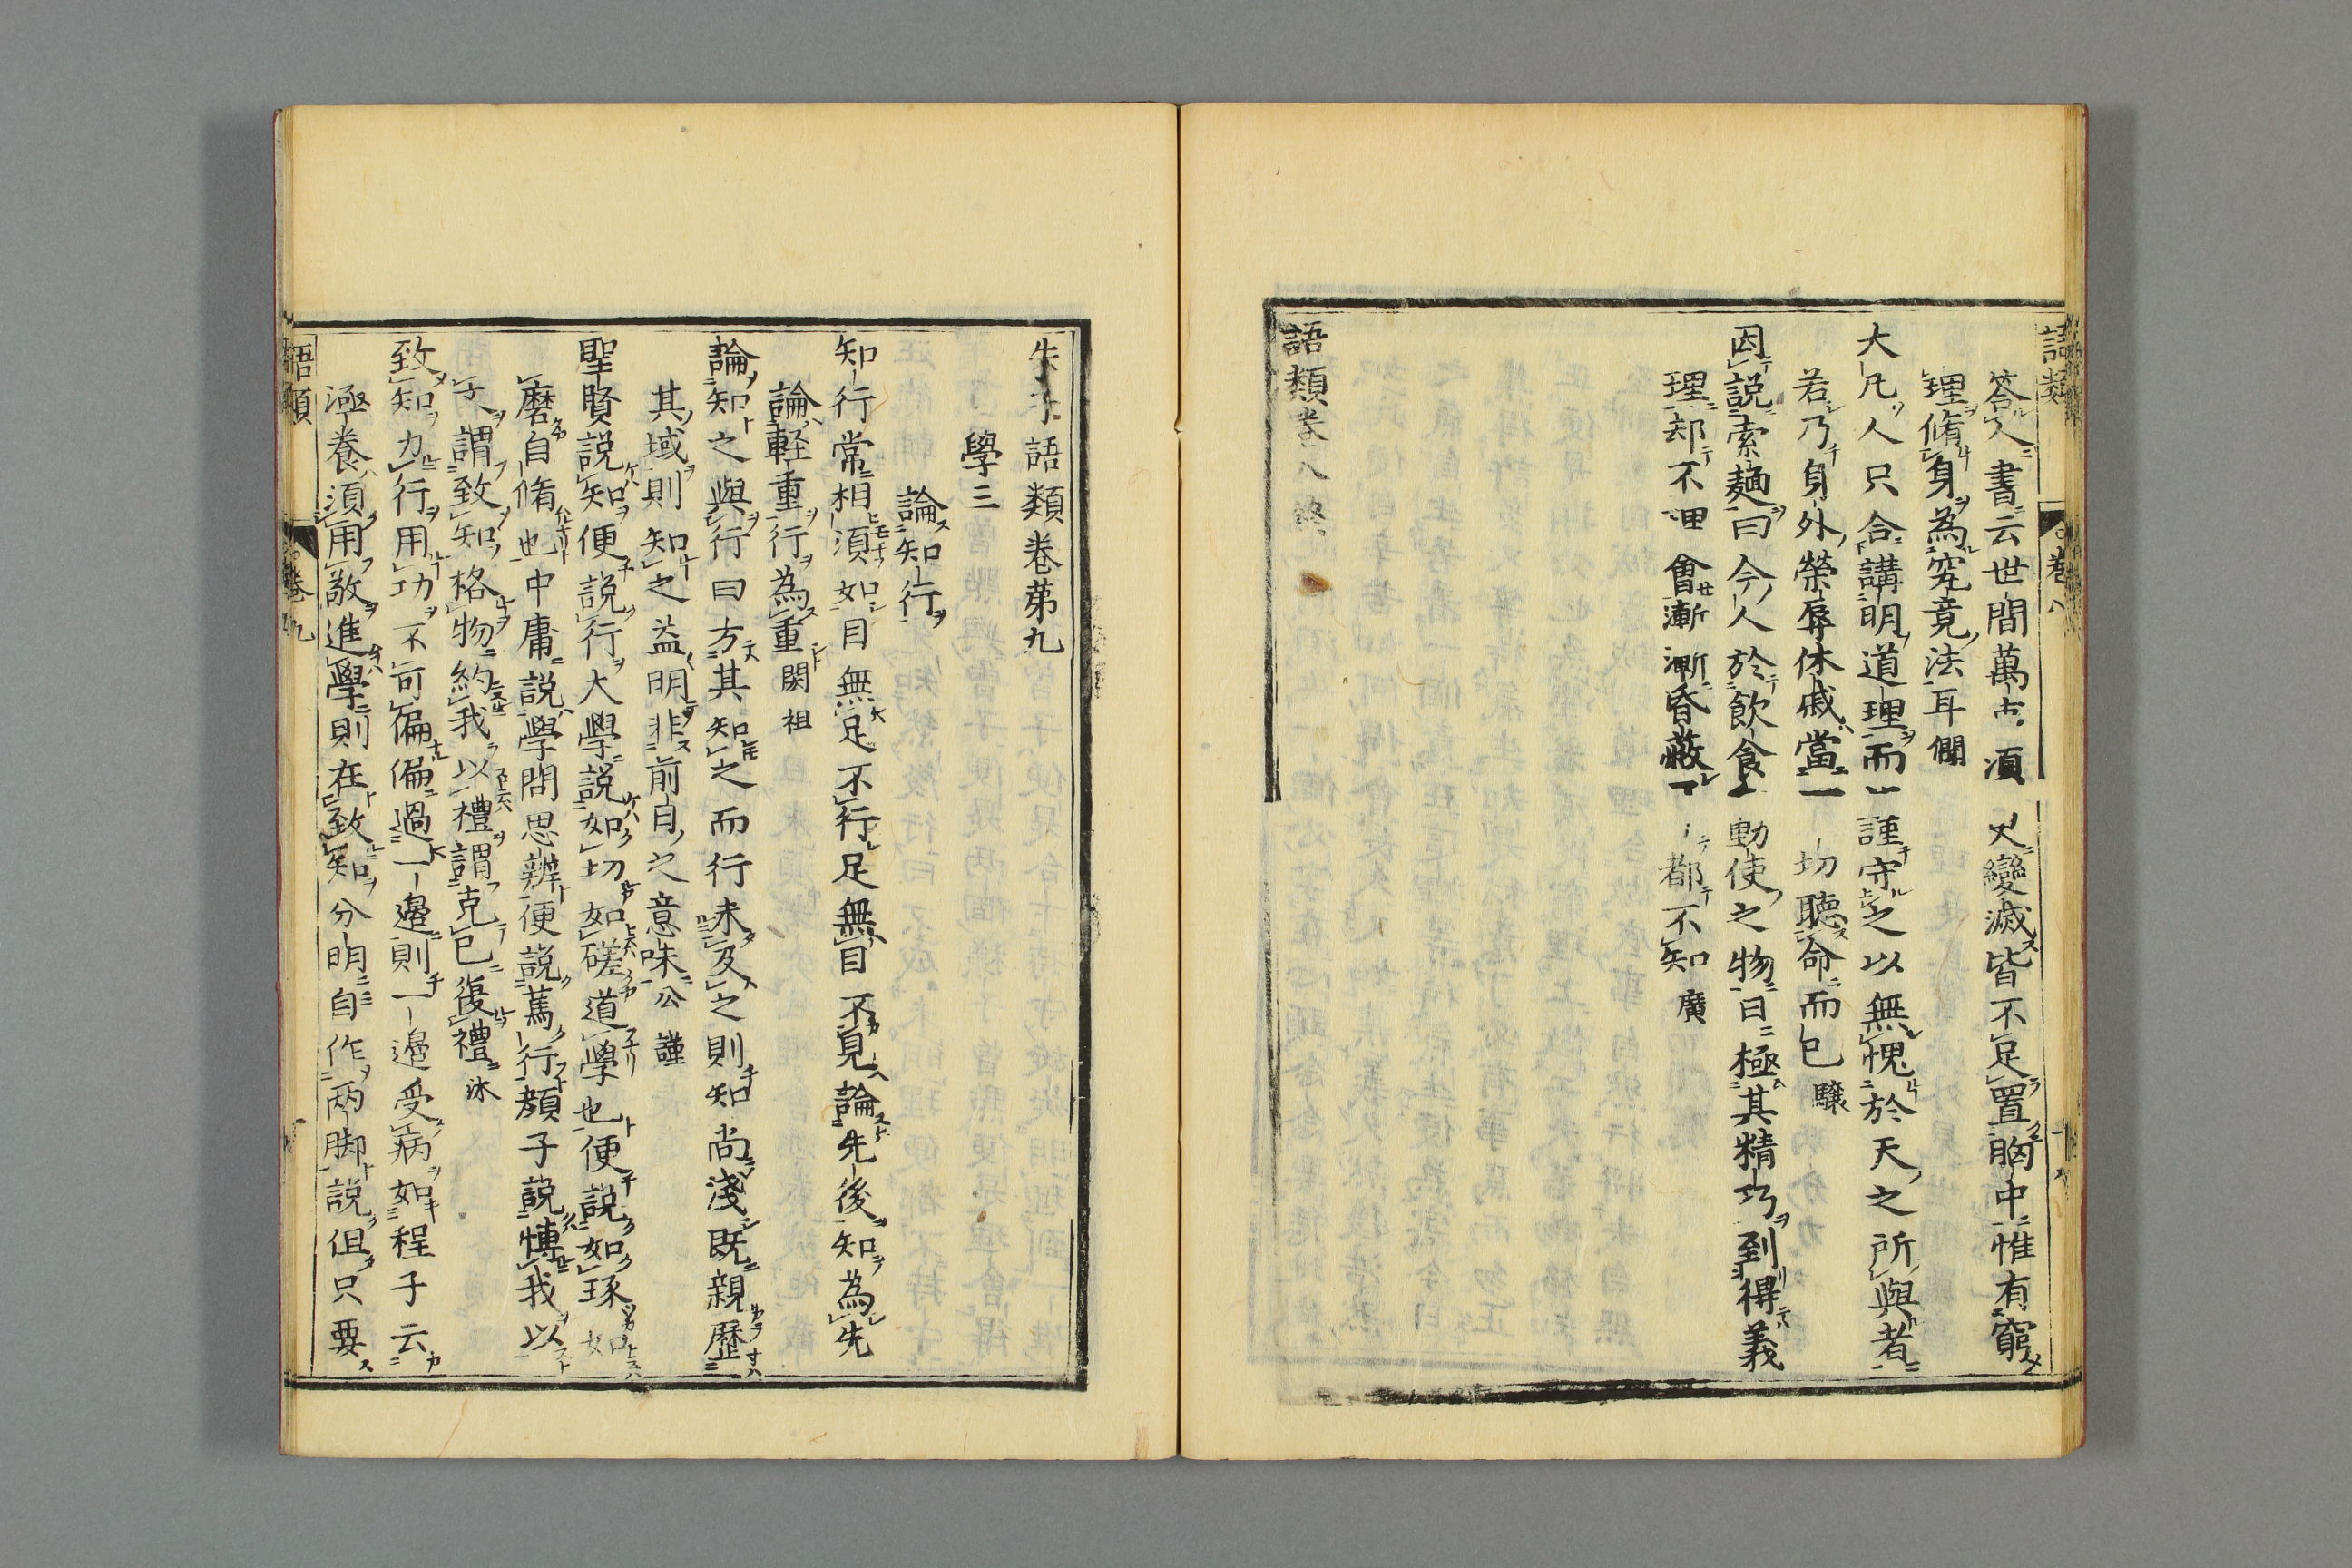 語類 卷八
答人書云世間萬古須臾變滅皆不足置胸中惟有窮
理脩身為究竟法耳僩
大凡人只合講明道理而謹守之以無愧於天之所與者
若乃身外榮辱休戚當一切聽命而已驤
因說索麺曰今人於飲食動使之物日極其精巧到得義
理却不理會漸漸昏蔽了都不知廣
語類卷八終
朱子語類卷第九
學三
論知行
知行常相須如目無足不行足無目不見論先後知為先
論輕重行為重閎祖
論知之與行曰方其知之而行未及之則知尚淺既親歷
其域則知之益明非前日之意味公謹
聖賢說知便說行大學說如切如磋道學也便說如琢如
磨自脩也中庸說學問思辨便說篤行顏子說博我以
文謂致知格物約我以禮謂克己復禮泳
致知力行用功不可偏偏過一邊則一邊受病如程子云
涵養須用敬進學則在致知分明自作兩脚說但只要
語類 卷九